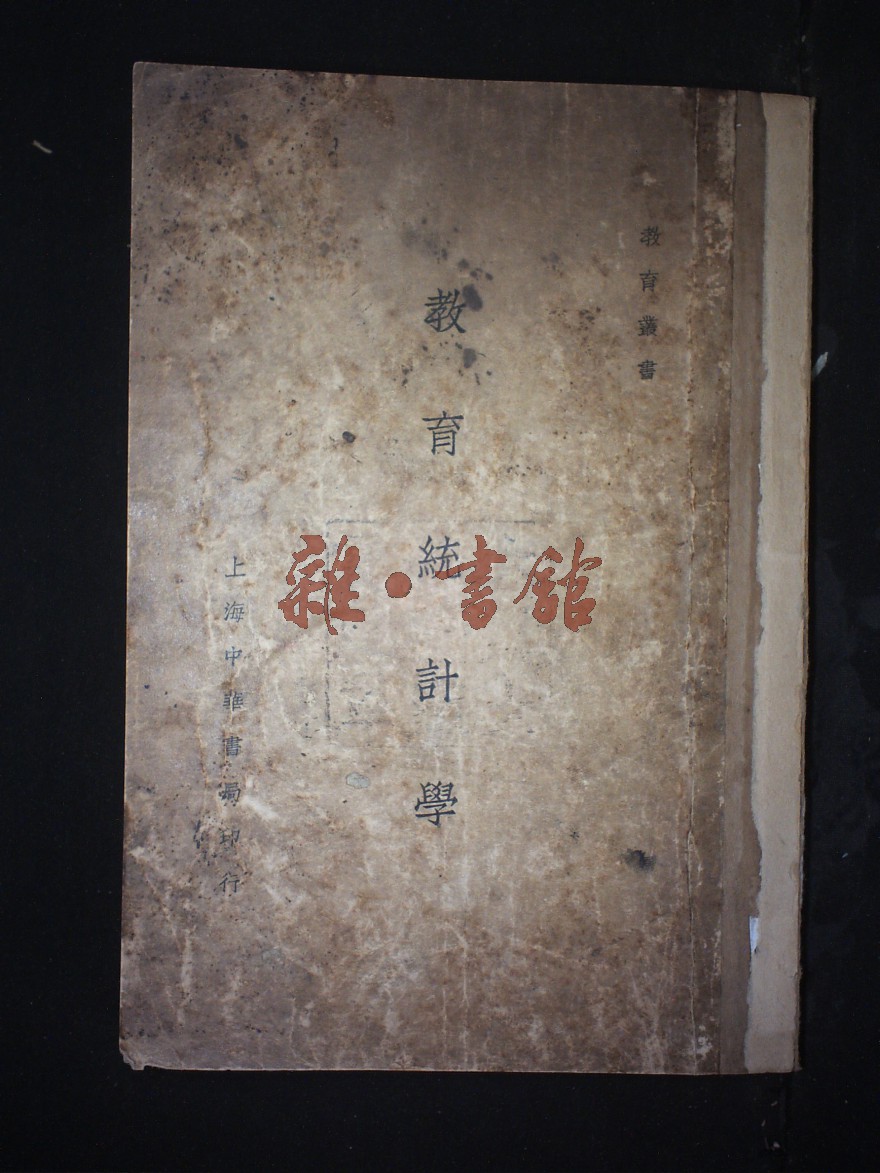 教育叢書
教育統計學
上海中華書局印行
雜·書館